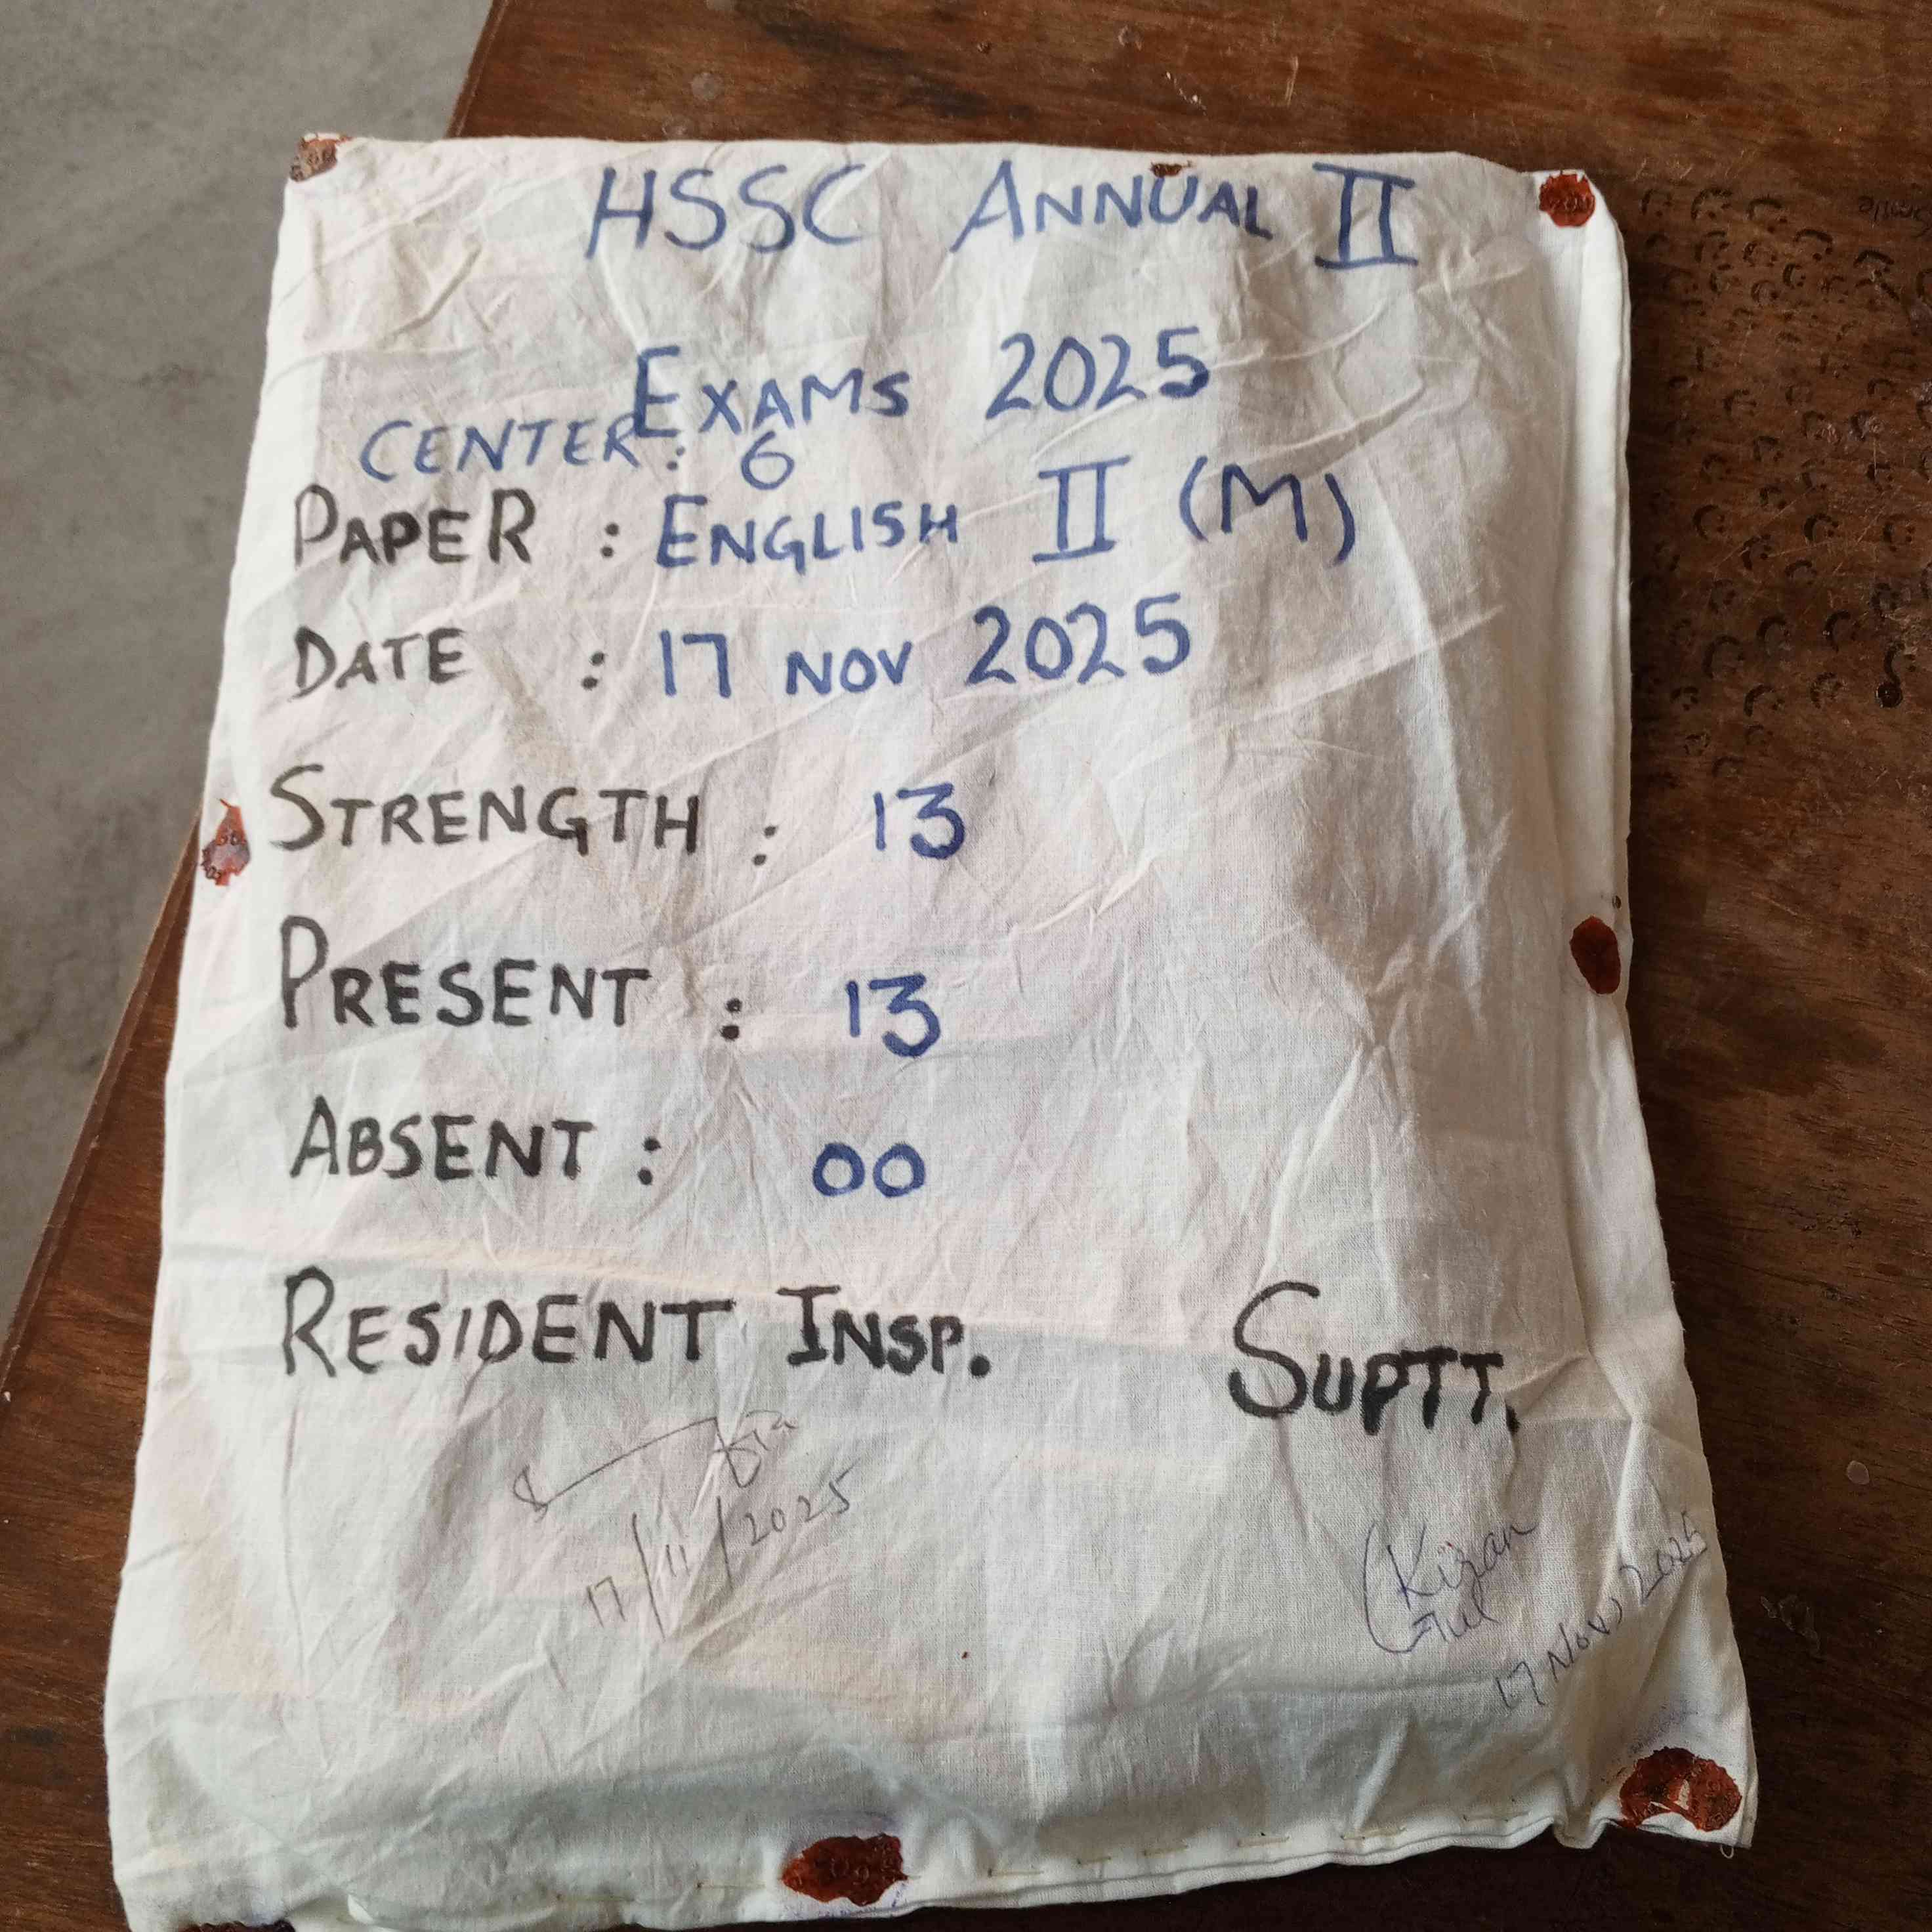 HSSC ANNUAL II
EXAMS 2025
CENTER: 6
PAPER : ENGLISH II (M)
DATE : 17 NOV 2025
STRENGTH : 13
PRESENT : 13
ABSENT : 00
RESIDENT INSP. SUPTT.
17/11/2025
Kiran
Gul
17 Nov, 2025